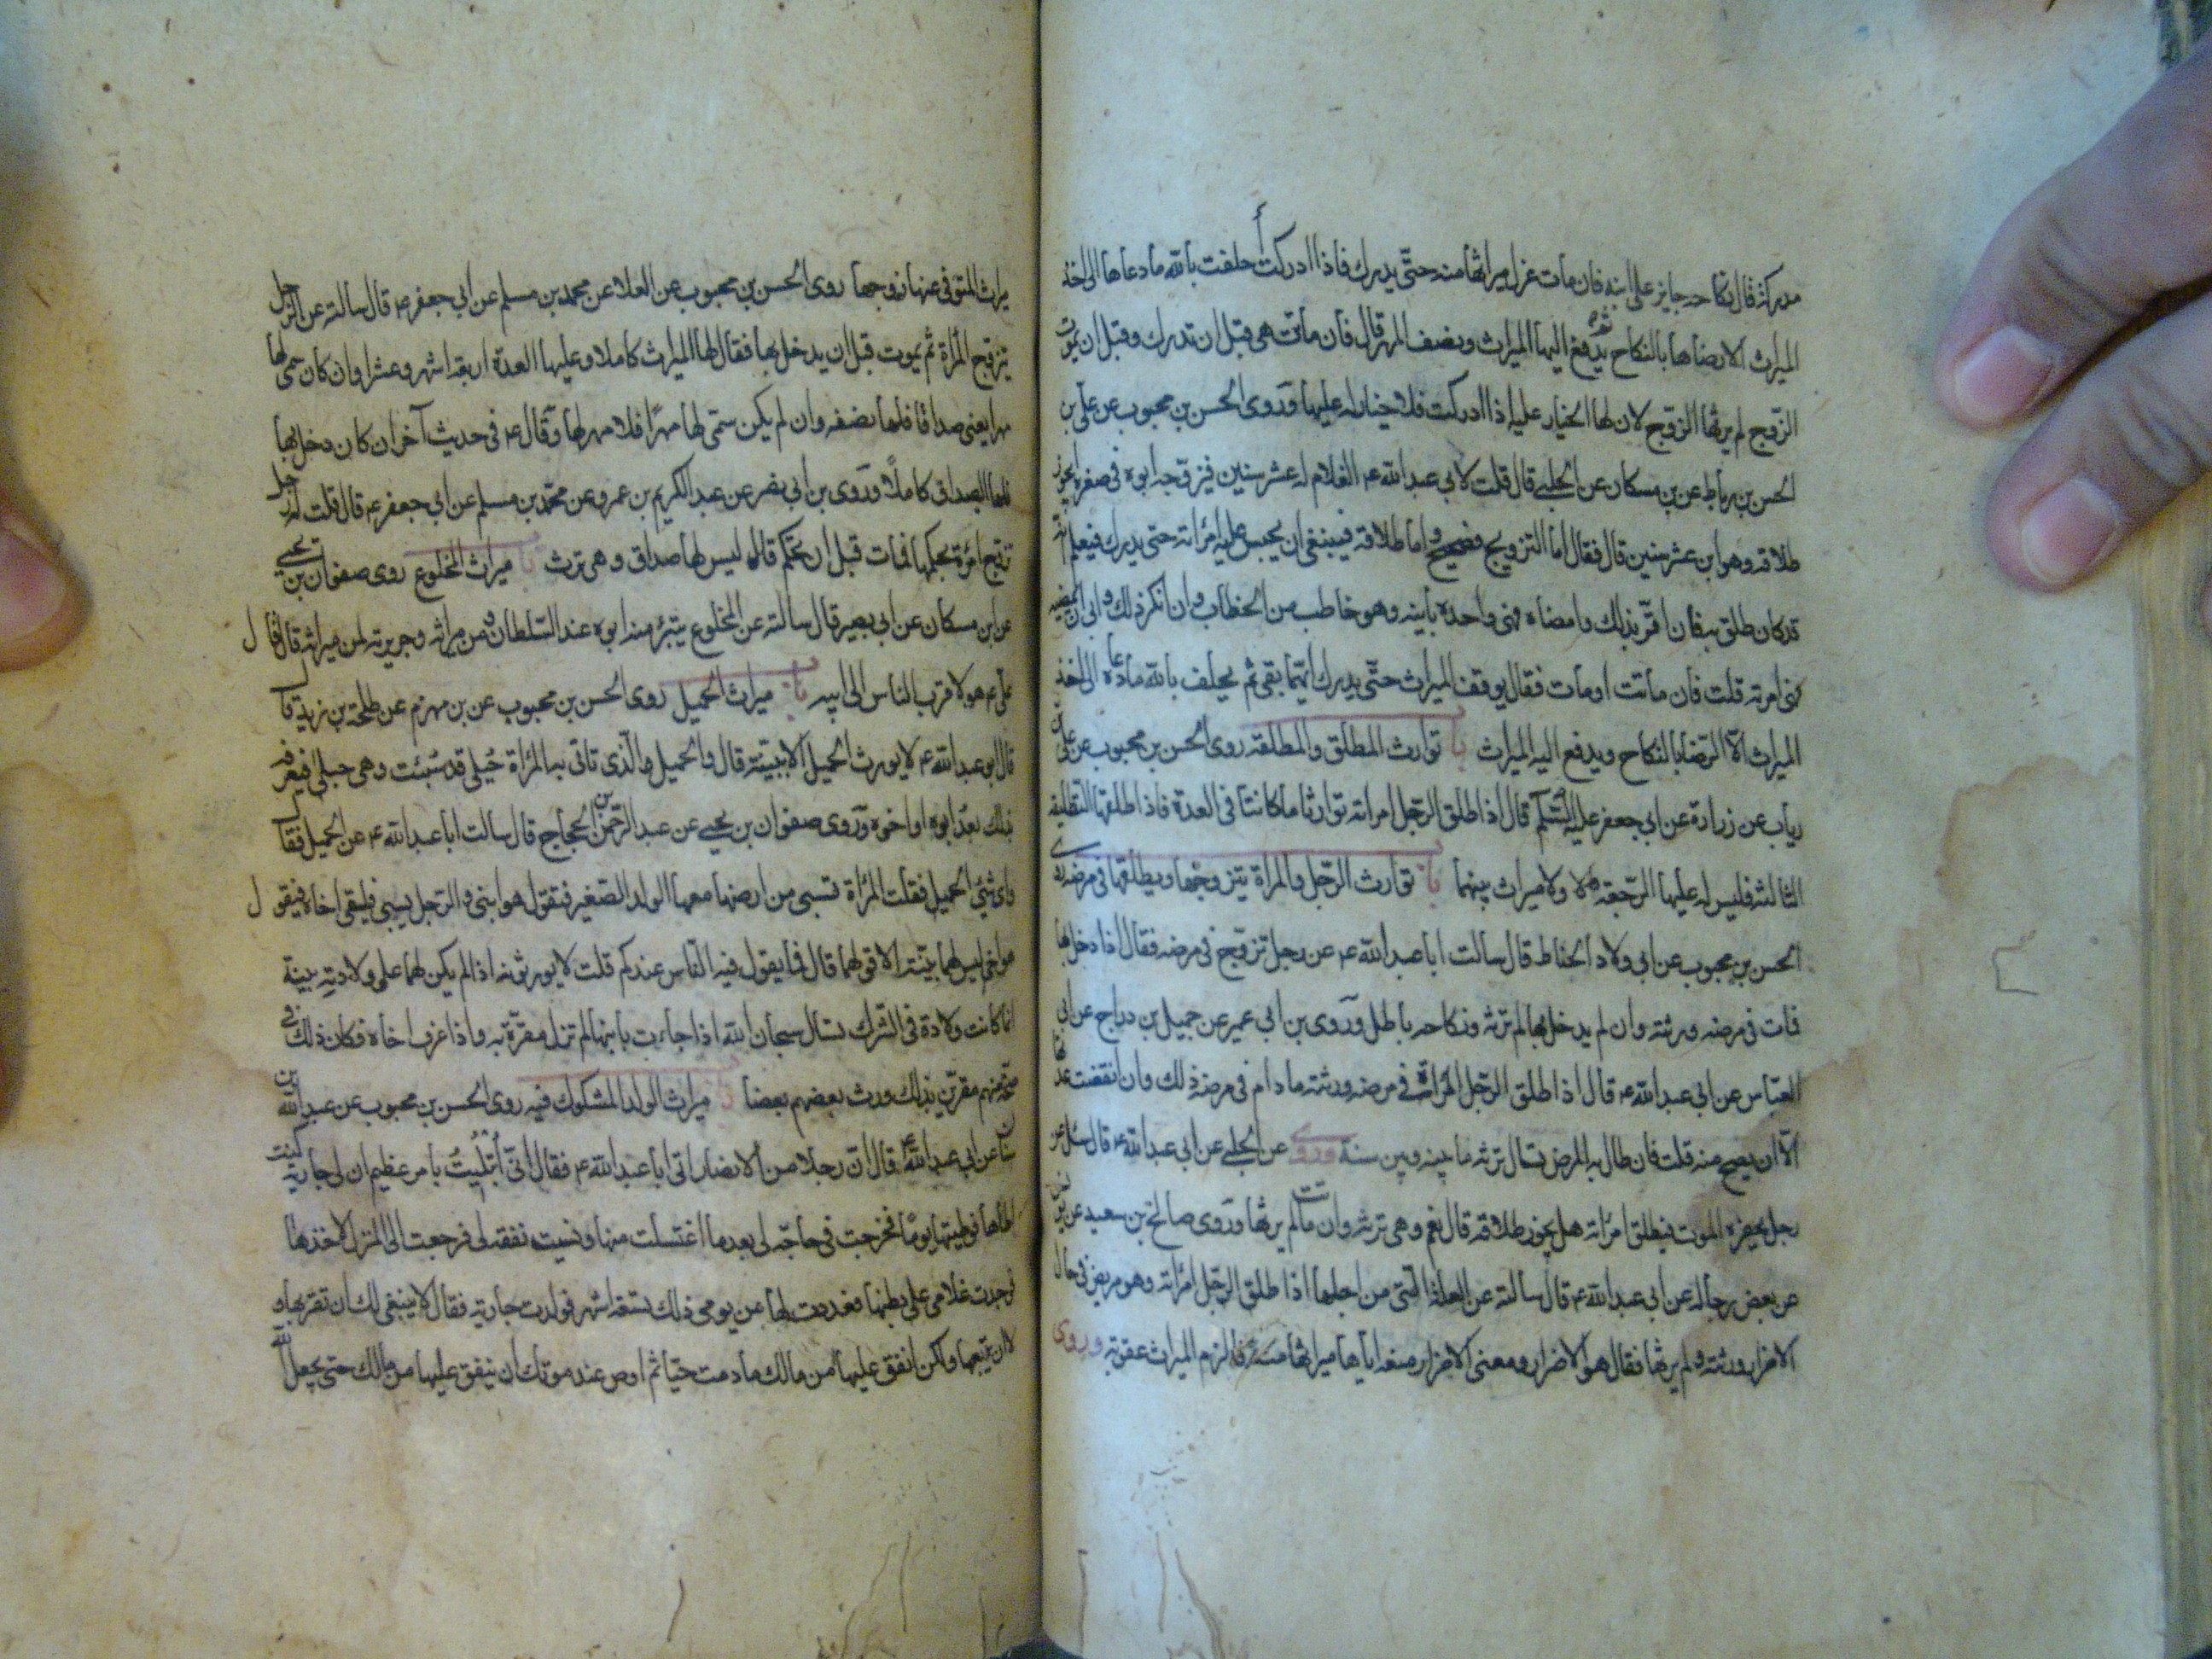 مدركة قال نكاحه جايز على ابنه فان مات عزل ميراثها منه حتّى يدرك فاذا ادركت حلفت بالله ما دعاها الى اخذ
الميراث الا رضاها بالنكاح ثم يدفع اليها الميراث ونصف المهر قال فان ماتت هى قبل ان تدرك وقبل ان يموت
الزّوج لم يرثها الزّوج لان لها الخيار عليه اذا ادركت فلا خيار له عليها وروى الحسن بن محبوب عن على بن
الحسن بن رباط عن بن مسكان عن الحلبى قال قلت لابى عبد الله ع الغلام له عشر سنين فيزوّجه ابوه فى صغره ايجوز
طلاقه وهو ابن عشر سنين قال فقال اما التزويج فصحيح واما طلاقه فينبغى ان يحبس عليه امرأته حتى يدرك فيعلم انّه
قد كان طلق به فان اقرّ بذلك وامضاه فهى واحدة باينه وهو خاطب من الخطاب وان انكر ذلك وابى ان يمضيه
فهى امرته قلت فان ماتت او مات فقال يوقف الميراث حتّى يدرك ايّهما بقى ثم يحلف بالله ما دعاه الى اخذ
الميراث الّا الرّضا بالنكاح ويدفع اليه الميراث باب توارث المطلق والمطلقه روى الحسن بن محبوب عن على بن
رياب عن زرارة عن ابى جعفر عليه السّلم قال اذا طلق الرّجل امراته توارثا ما كانتا فى العدة فاذا طلقها التطليقه
الثالثه فليس له عليها الرّجعة ولا ميراث بينهما باب توارث الرّجل والمراة يتزوجها ويطلقها فى مرضه روى
الحسن بن محبوب عن ابى ولاد الحناط قال سالت ابا عبد الله ع عن رجل تزوّج فى مرضه فقال اذا دخل بها
فمات فى مرضه ورثته وان لم يدخل بها لم ترثه ونكاحه باطل وروى بن ابى عمير عن جميل بن دراج عن ابى
العبّاس عن ابى عبد الله ع قال اذا طلق الرّجل المرأة فى مرضه ورثته ما دام فى مرضه ذلك وان انقضت عدتها
الّا ان يصح منه قلت فان طال به المرض قال ترثه ما بينه وبين سنة وروى عن الحلبى عن ابى عبد الله ع قال سئل عن
رجل يحضره الموت فيطلق امرأته هل يجوز طلاقه قال نعم وهى ترثه وان ماتت لم يرثها وروى صالح بن سعيد عن يونس
عن بعض رجاله عن ابى عبد الله ع قال سالته عن العلة الّتى من اجلها اذا طلق الرّجل امرأته وهو مريض فى حال
الاضرار ورثته ولم يرثها فقال هو الاضرار ومعنى الاضرار منعه اياها ميراثها منه فالزم الميراث عقوبة وروى
ميراث المتوفى عنها زوجها روى الحسن بن محبوب عن العلا عن محمد بن مسلم عن ابى جعفر ع قال سالته عن الرّجل
يتزوّج المرأة ثم يموت قبل ان يدخل بها فقال لها الميراث كاملا وعليها العدة اربعة اشهر وعشرا وان كان سمى لها
مهرا يعنى صداقا فلها نصفه وان لم يكن سمّى لها مهرًا فلا مهر لها وقال ع فى حديث آخر ان كان دخل بها
فلها الصداق كاملًا وروى بن ابى نصر عن عبد الكريم بن عمرو عن محمّد بن مسلم عن ابى جعفر ع قال قلت له رجل
تزوّج امرأة بحكمها فمات قبل ان تحكم قال ليس لها صداق وهى ترث باب ميراث المخلوع روى صفوان بن يحيى
عن ابن مسكان عن ابى بصير قال سالته عن المخلوع يتبرّء منه ابوه عند السّلطان ومن ميراثه وجريرته لمن ميراثه قال قال
على ع هو لاقرب الناس الى ابيه باب ميراث الحميل روى الحسن بن محبوب عن بن مهزم عن طلحة بن زيد قال
قال ابو عبد الله ع لا يورث الحميل الا ببيّنة قال والحميل هو الّذى تاتى به المرأة حبلى قد سُبئت وهى حبلى فيعرفه
بذلك بعد ابوه او اخوه وروى صفوان بن يحيى عن عبد الرّحمن بن الحجّاج قال سالت ابا عبد الله ع عن الحميل فقال
واى شئ الحميل فقلت المرأة تسبى من ارضها معها الولد الصّغير فتقول هو ابنى والرّجل يسبى فيلقى اخاه فيقول
هو اخى ليس لهما بيّنة الا قولهما قال فما يقول فيه النّاس عندكم قلت لا يورثونه اذا لم يكن لهما على ولادته بينة
انما كانت ولادة فى الشّرك قال سبحان الله اذا جاءت بابنها لم تزل مقرّة به واذا عرف اخاه فكان ذلك فى
صحّة منهم مقرّين بذلك ورث بعضهم بعضا باب ميراث الولد المشكوك فيه روى الحسن بن محبوب عن عبد الله بن
سنان عن ابى عبد الله ع قال انّ رجلا من الانصار اتى ابا عبد الله ع فقال انّى اُبتُليتُ بامر عظيم ان لى جارية كنت
اطاها فوطيتها يومًا فخرجت فى حاجة لى بعد ما اغتسلت منها ونسيت نفقة لى فرجعت الى المنزل لاخذها
فوجدت غلامى على بطنها فعددت لها من يومى ذلك تسعة اشهر فولدت جارية فقال لا ينبغى لك ان تقربها و
لا ان تبيعها ولكن انفق عليها من مالك ما دمت حيّا ثم اوص عند موتك ان ينفق عليها من مالك حتى يجعل الله